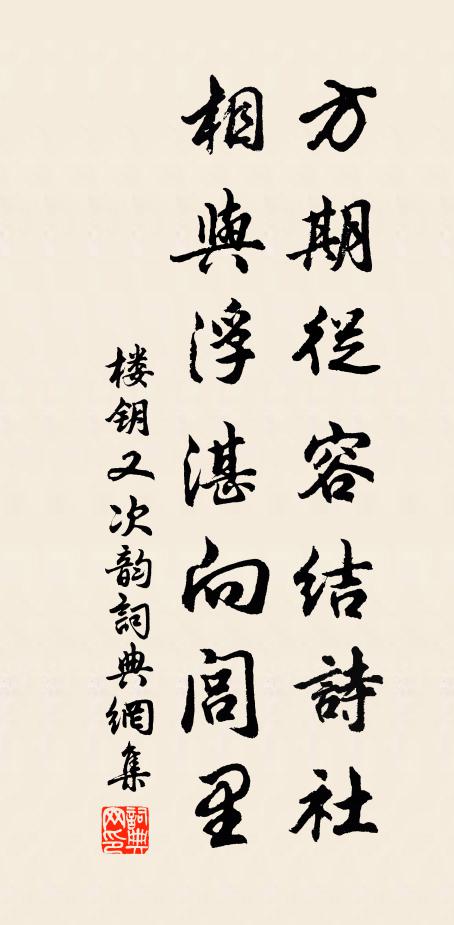 方期從容結詩社
相與浮湛向閭里
楼钥又次韵詞典網集
詞典網印